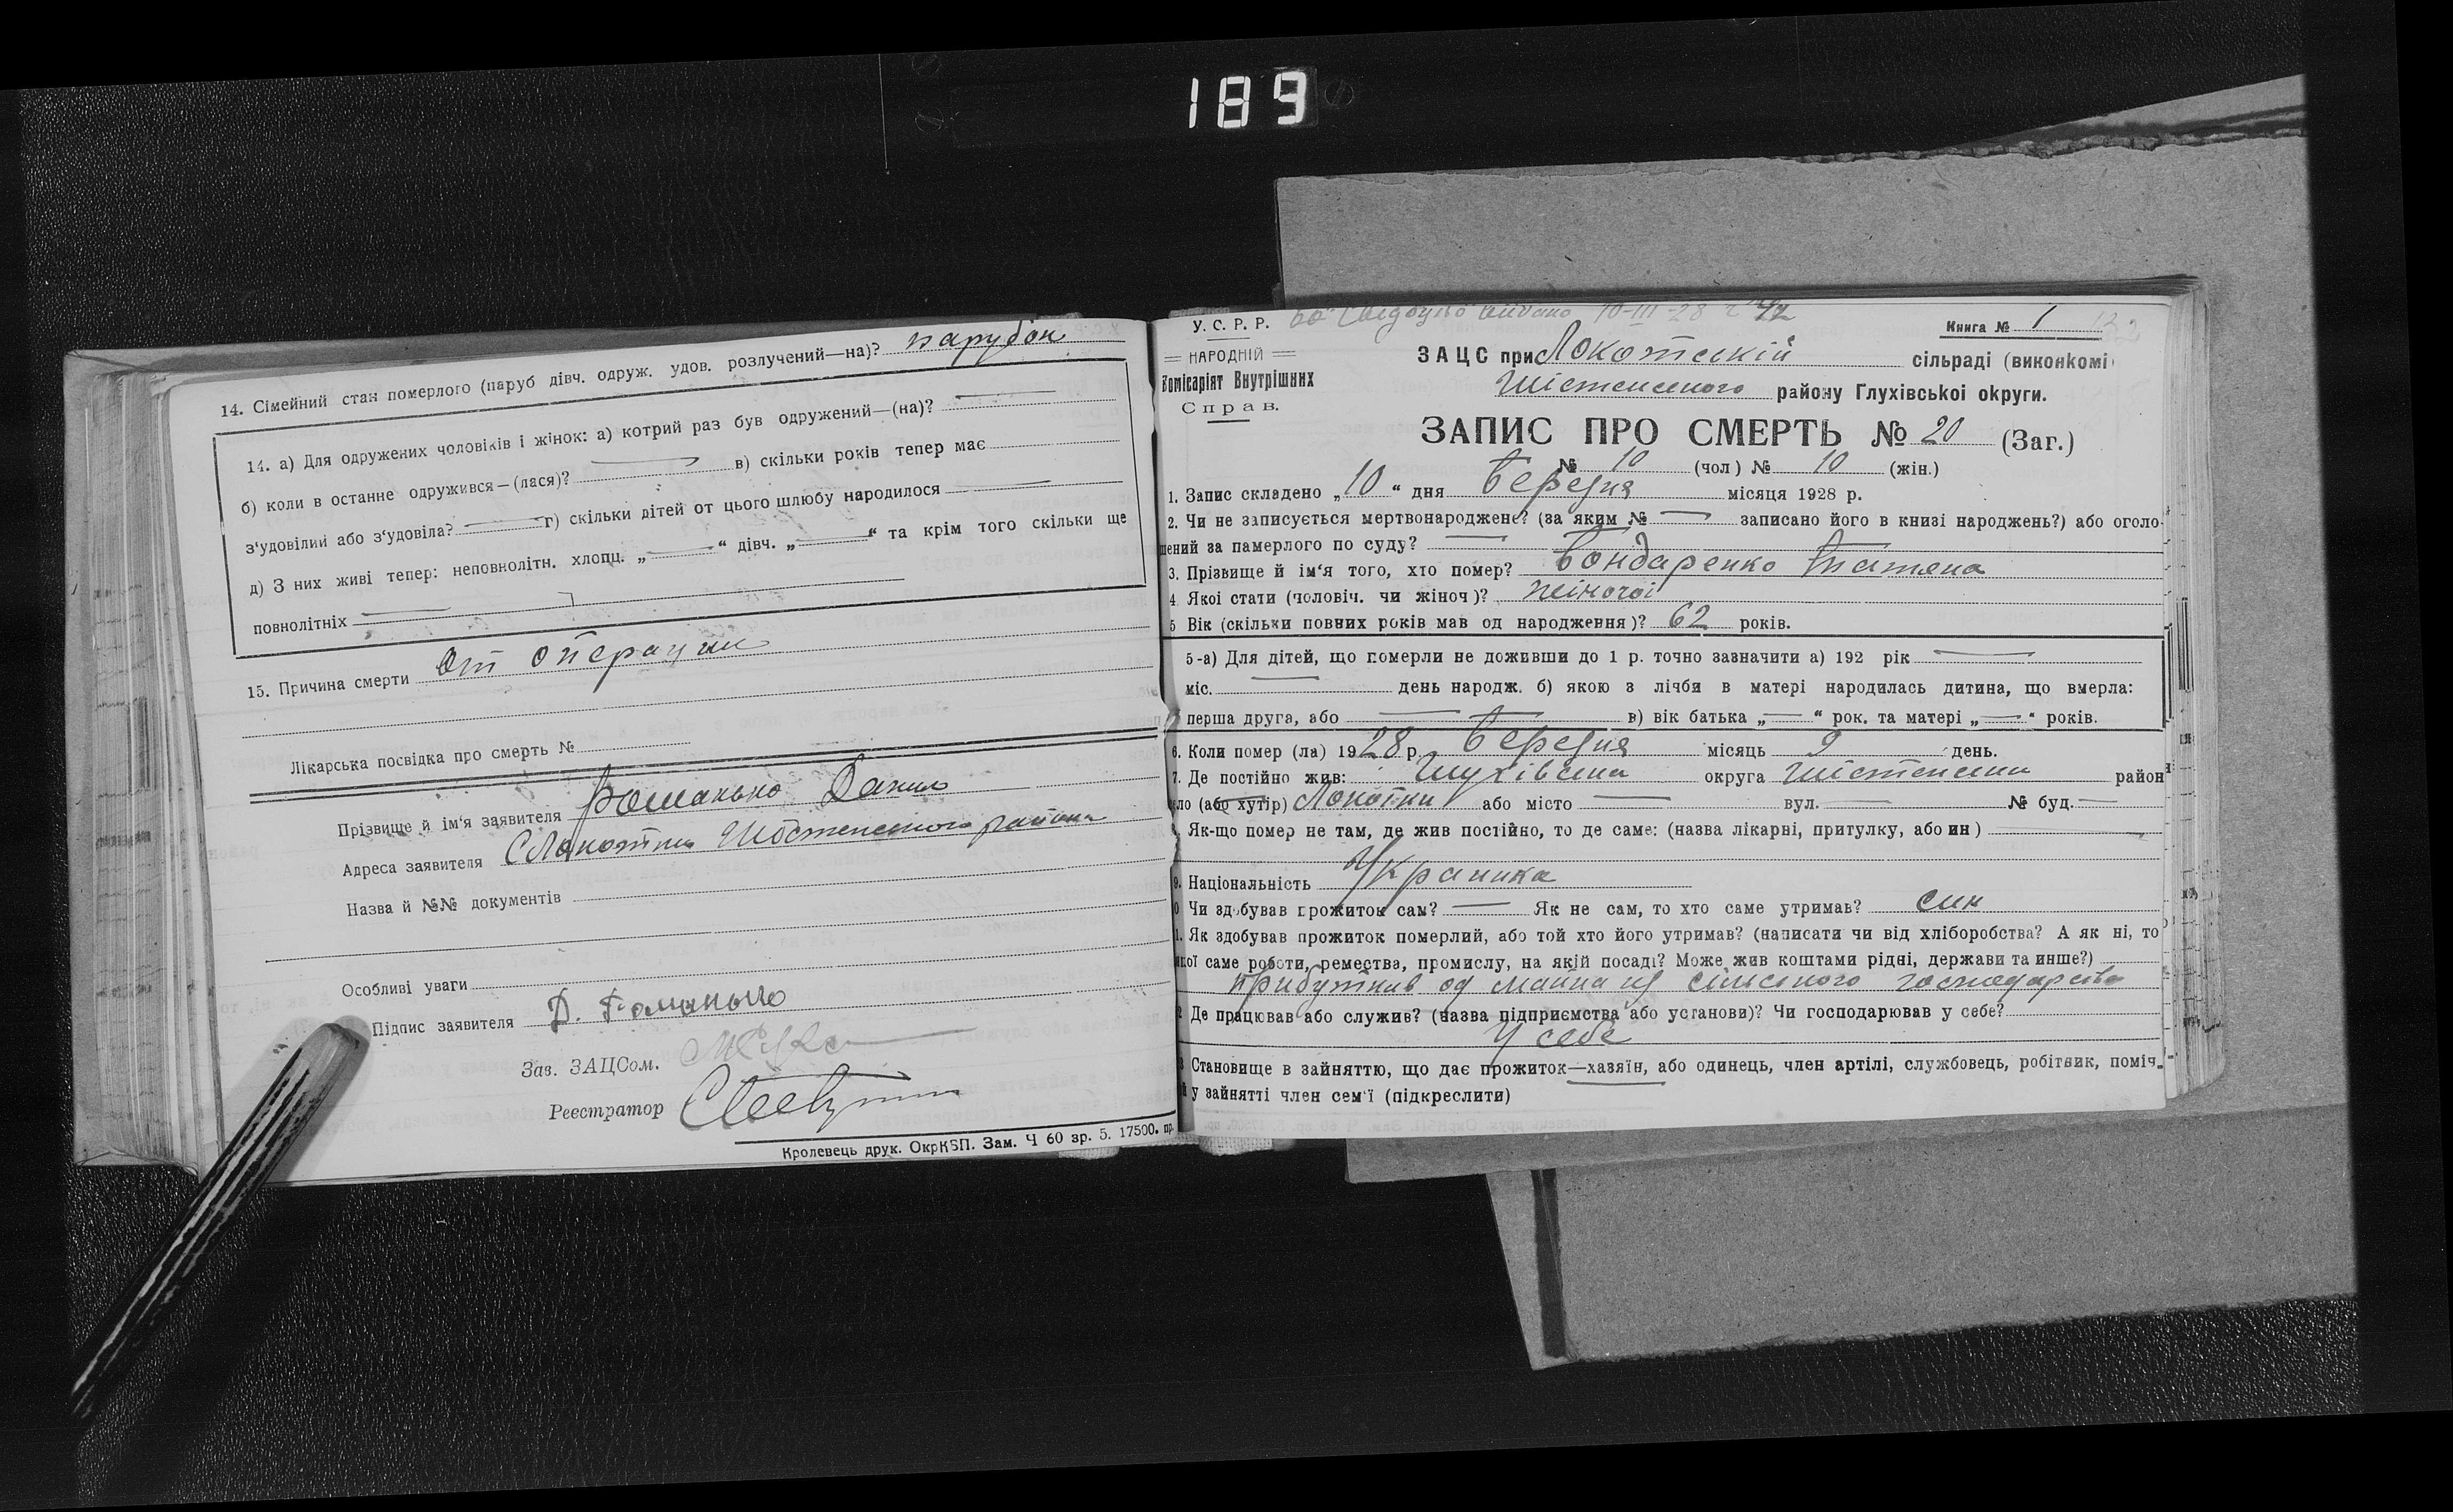 189
14. Сімейний стан померлого (паруб дівч. одруж. удов. розлучений—на)? парубок
14. а) Для одружених чоловіків і жінок: а) котрий раз був одружений—(на)?
б) коли в останне одружився—(лася)? в) скільки років тепер має
з‘удовілий або з‘удовіла? г) скільки дітей от цього шлюбу народилося
д) З них живі тепер: неповнолітн. хлопц. „ — “ дівч. „ — “ та крім того скільки ще
повнолітніх
15. Причина смерти От операции
Лікарська посвідка про смерть №
Прізвище й ім‘я заявителя Романько Данило
Адреса заявителя С Локотки Шостенского района
Назва й №№ документів
Особливі уваги
Підпис заявителя Д. Романько
Зав. ЗАЦСом.
Реєстратор
Кролевець друк. ОкрКВП. Зам. Ч 60 зр. 5. 17500. пр.
У. С. Р. Р. видано 10-III-28 г
Книга № 1
НАРОДНІЙ
Комісаріят Внутрішних
Справ.
ЗАЦС при Локотській сільраді (виконкомі
Шістенського району Глухівської округи.
ЗАПИС ПРО СМЕРТЬ № 20 (Заг.)
№ 10 (чол) № 10 (жін.)
1. Запис складено „10“ дня Березня місяця 1928 р.
2. Чи не записується мертвонароджене? (за яким № — записано його в книзі народжень?) або оголо-
шений за памерлого по суду? —
3. Прізвище й ім‘я того, хто помер? Бондаренко Татяна
4 Якої стати (чоловіч. чи жіноч)? жіночої
5 Вік (скільки повних років мав од народження)? 62 років.
5-а) Для дітей, що померли не доживши до 1 р. точно зазначити а) 192 рік —
міс. — день народж. б) якою з лічби в матері народилась дитина, що вмерла:
перша друга, або — в) вік батька „—“ рок. та матері „—“ років.
6. Коли помер (ла) 1928 р. Березня місяць 9 день.
7. Де постійно жив: Глухівська округа Шістенский район
ло (або хутір) Локотки або місто — вул. — № буд. —
Як-що помер не там, де жив постійно, то де саме: (назва лікарні, притулку, або ин) —
9. Національність Украинка
Чи здобував прожиток сам? — Як не сам, то хто саме утримав? син
1. Як здобував прожиток померлий, або той хто його утримав? (написати чи від хліборобства? А як ні, то
кої саме роботи, ремества, промислу, на якій посаді? Може жив коштами рідні, держави та инше?)
Прибутків од майна из сільського господарства
2 Де працював або служив? (назва підприємства або установи)? Чи господарював у себе?
У себе
3 Становище в зайняттю, що дає прожиток—хазяїн, або одинець, член артілі, службовець, робітник, поміч-
й у зайнятті член сем‘ї (підкреслити)